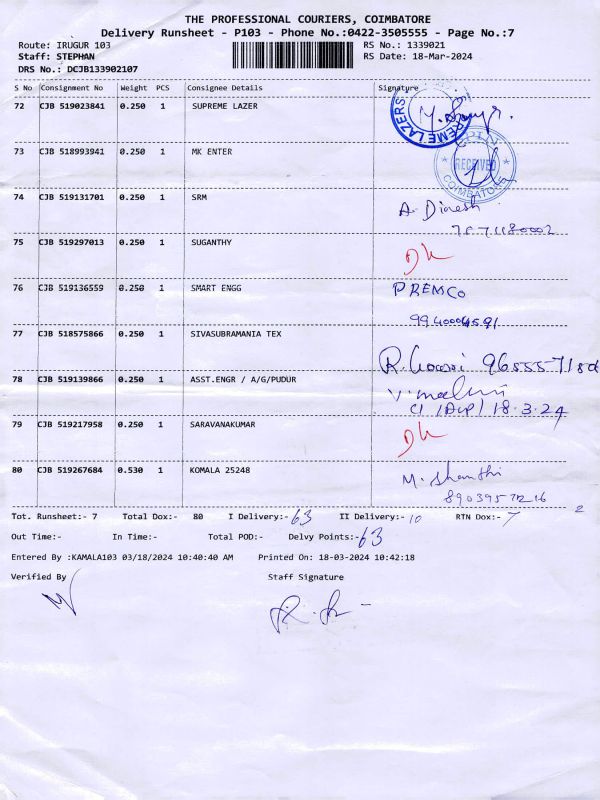 THE PROFESSIONAL COURIERS, COIMBATORE
Delivery Runsheet - P103 - Phone No.:0422-3505555 - Page No.:7
Route: IRUGUR 103 RS No.: 1339021
Staff: STEPHAN RS Date: 18-Mar-2024
DRS No.: DCJB133902107
S No Consignment No Weight PCS Consignee Details Signature
72 CJB 519023841 0.250 1 SUPREME LAZER
REME LAZERS
73 CJB 518993941 0.250 1 MK ENTER
RECEIVED
COIMBATORE
74 CJB 519131701 0.250 1 SRM A. Dinesh
75 CJB 519297013 0.250 1 SUGANTHY
76 CJB 519136559 0.250 1 SMART ENGG PREMCO
9940004591
77 CJB 518575866 0.250 1 SIVASUBRAMANIA TEX
78 CJB 519139866 0.250 1 ASST.ENGR / A/G/PUDUR
18.3.24
79 CJB 519217958 0.250 1 SARAVANAKUMAR
80 CJB 519267684 0.530 1 KOMALA 25248 M. Shanthi
2
Tot. Runsheet:- 7 Total Dox:- 80 I Delivery:- 63 II Delivery:- 10 RTN Dox:- 7
Out Time:- In Time:- Total POD:- Delvy Points:- 63
Entered By :KAMALA103 03/18/2024 10:40:40 AM Printed On: 18-03-2024 10:42:18
Verified By Staff Signature